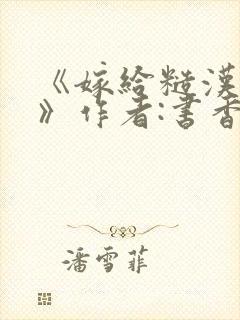 《嫁给糙汉
》作者:书香
潘雪菲